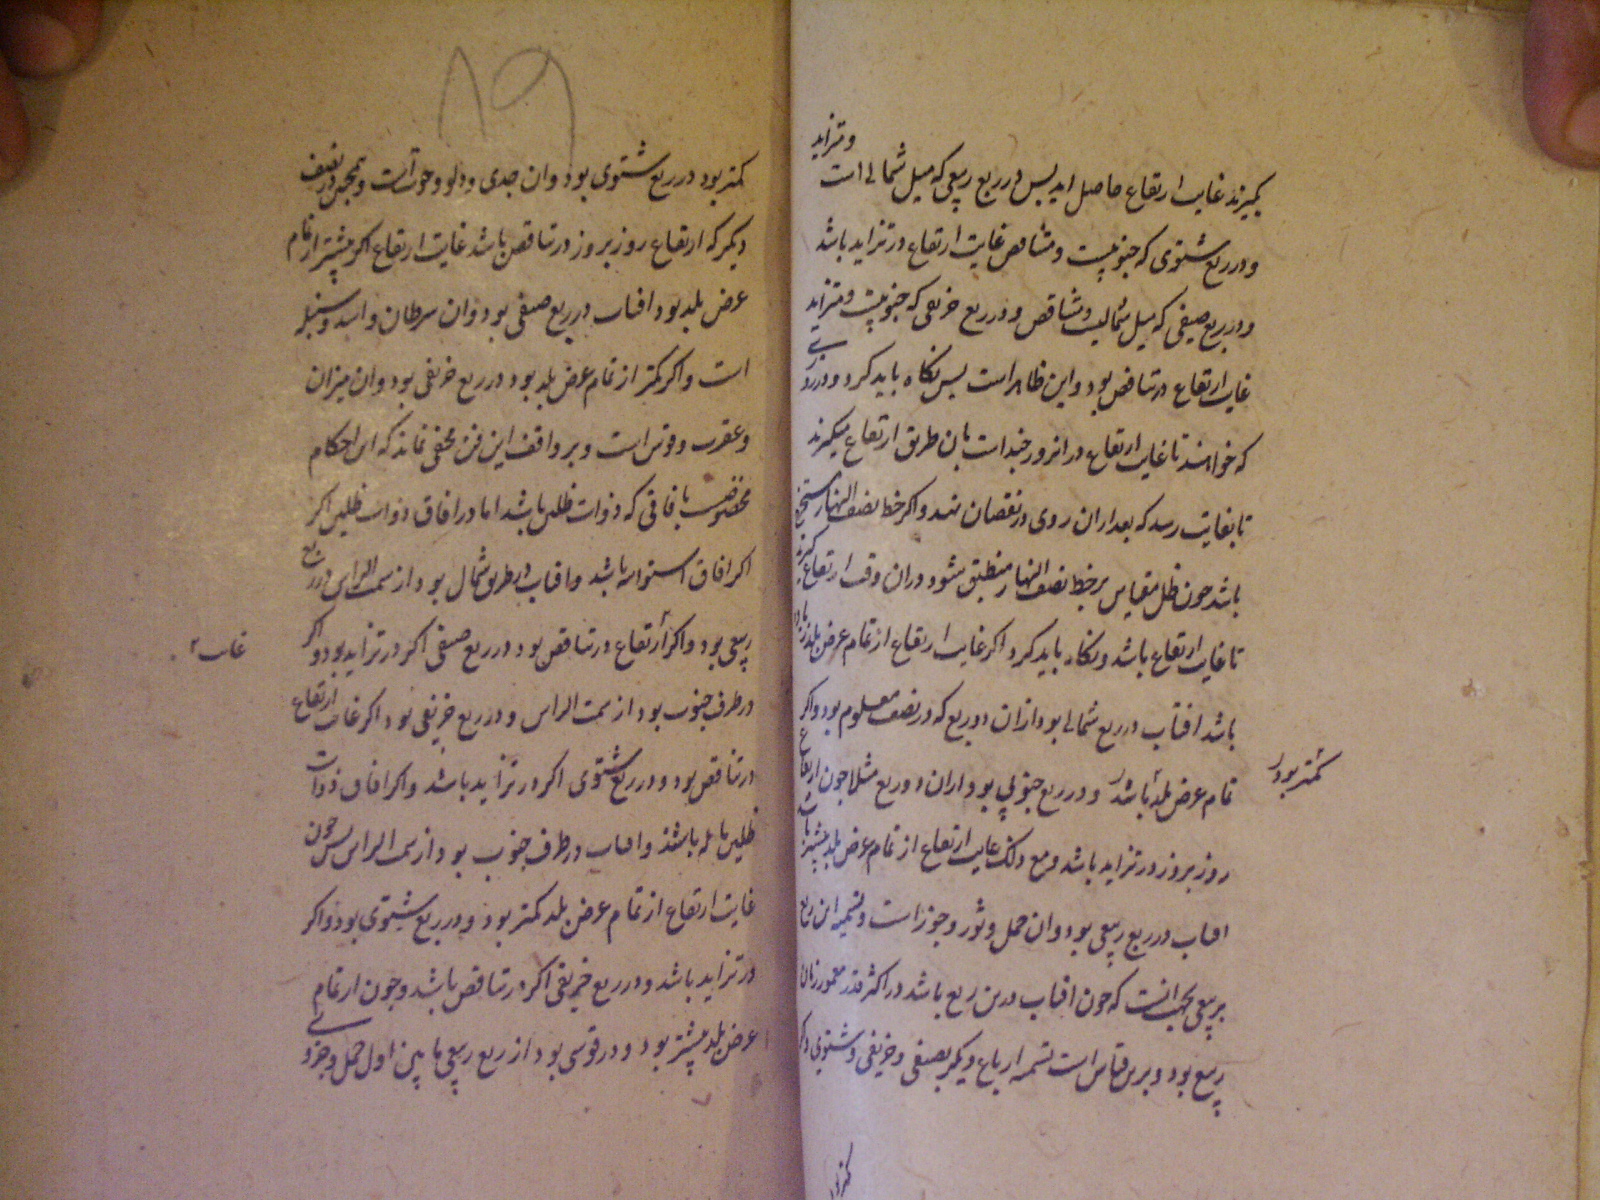 و متزاید
بگیرند غایت ارتفاع حاصل اید پس در ربع ربیعی که میل شمالی است
و در ربع شتوی که جنوبیست و متناقص غایت ارتفاع در تزاید باشد
و در ربع صیفی که میل شمالیست و متناقص و در ربع خریفی که جنوبیست و متزاید
غایت ارتفاع در تناقص بود و این ظاهر است پس نکاه باید کرد و در روزی
که خواهند تا غایت ارتفاع در انروز چند است بان طریق ارتفاع میکیرند
تا بغایت رسد که بعد ازان روی در نقصان نهد و اکر خط نصف النهار مستخرج
باشد چون ظل مقیاس بر خط نصف النهار منطبق شود دران وقت ارتفاع کیرند
تا غایت ارتفاع باشد و نکاه باید کرد اکر غایت ارتفاع از تمام عرض بلد زیاده
باشد افتاب در ربع شمالی بود ازان دو ربع که در نصف معلوم بود و اکر
کمتر بود
تمام عرض بلد باشد و در ربع جنوبی بود ازان دو ربع مثلا چون ارتفاع
روز بروز در تزاید باشد و مع ذلک غایت ارتفاع از تمام عرض بلد بیشتر باشد
افتاب در ربع ربیعی بود و ان حمل و ثور و جوزاست و تسمیه این ربع
بربیعی بجهت انست که چون افتاب درین ربع باشد در اکثر قدر معمور زمان
ربیع بود و برین قیاس است تسمیه ارباع دیکر بصیفی و خریفی و شتوی و اکر
کمتر بود
۸۹
کمتر بود در ربع شتوی بود و ان جدی و دلو و حوت است و همچنین در نصف
دیکر که ارتفاع روز بروز در تناقص باشد غایت ارتفاع اکر بیشتر از تمام
عرض بلد بود افتاب در ربع صیفی بود و ان سرطان و اسد و سنبله
است و اکر کمتر از تمام عرض بلد بود در ربع خریفی بود و ان میزان
و عقرب و قوس است و بر واقف این فن مخفی نماند که این احکام
مخصوص بافاقی که ذوات ظلین باشد اما در افاق ذوات ظلین اکر
اکر افاق استوائیه باشد و افتاب در طرف شمال بود از سمت الراس در ربع
ربیعی بود و اکر ارتفاع در تناقص بود و در ربع صیفی اکر در تزاید بود و اکر
غایت
در طرف جنوب بود از سمت الراس و در ربع خریفی بود اکر غایت ارتفاع
در تناقص بود و در ربع شتوی اکر در تزاید باشد و اکر افاق ذوات
ظلین مایله باشند و افتاب در طرف جنوب بود از سمت الراس پس چون
غایت ارتفاع از تمام عرض بلد کمتر بود و در ربع شتوی بود و اکر
در تزاید باشد و در ربع خریفی اکر در تناقص باشد و چون از تمام
عرض بلد بیشتر بود و در قوسی بود از ربع ربیعی مابین اول حمل و جزوی